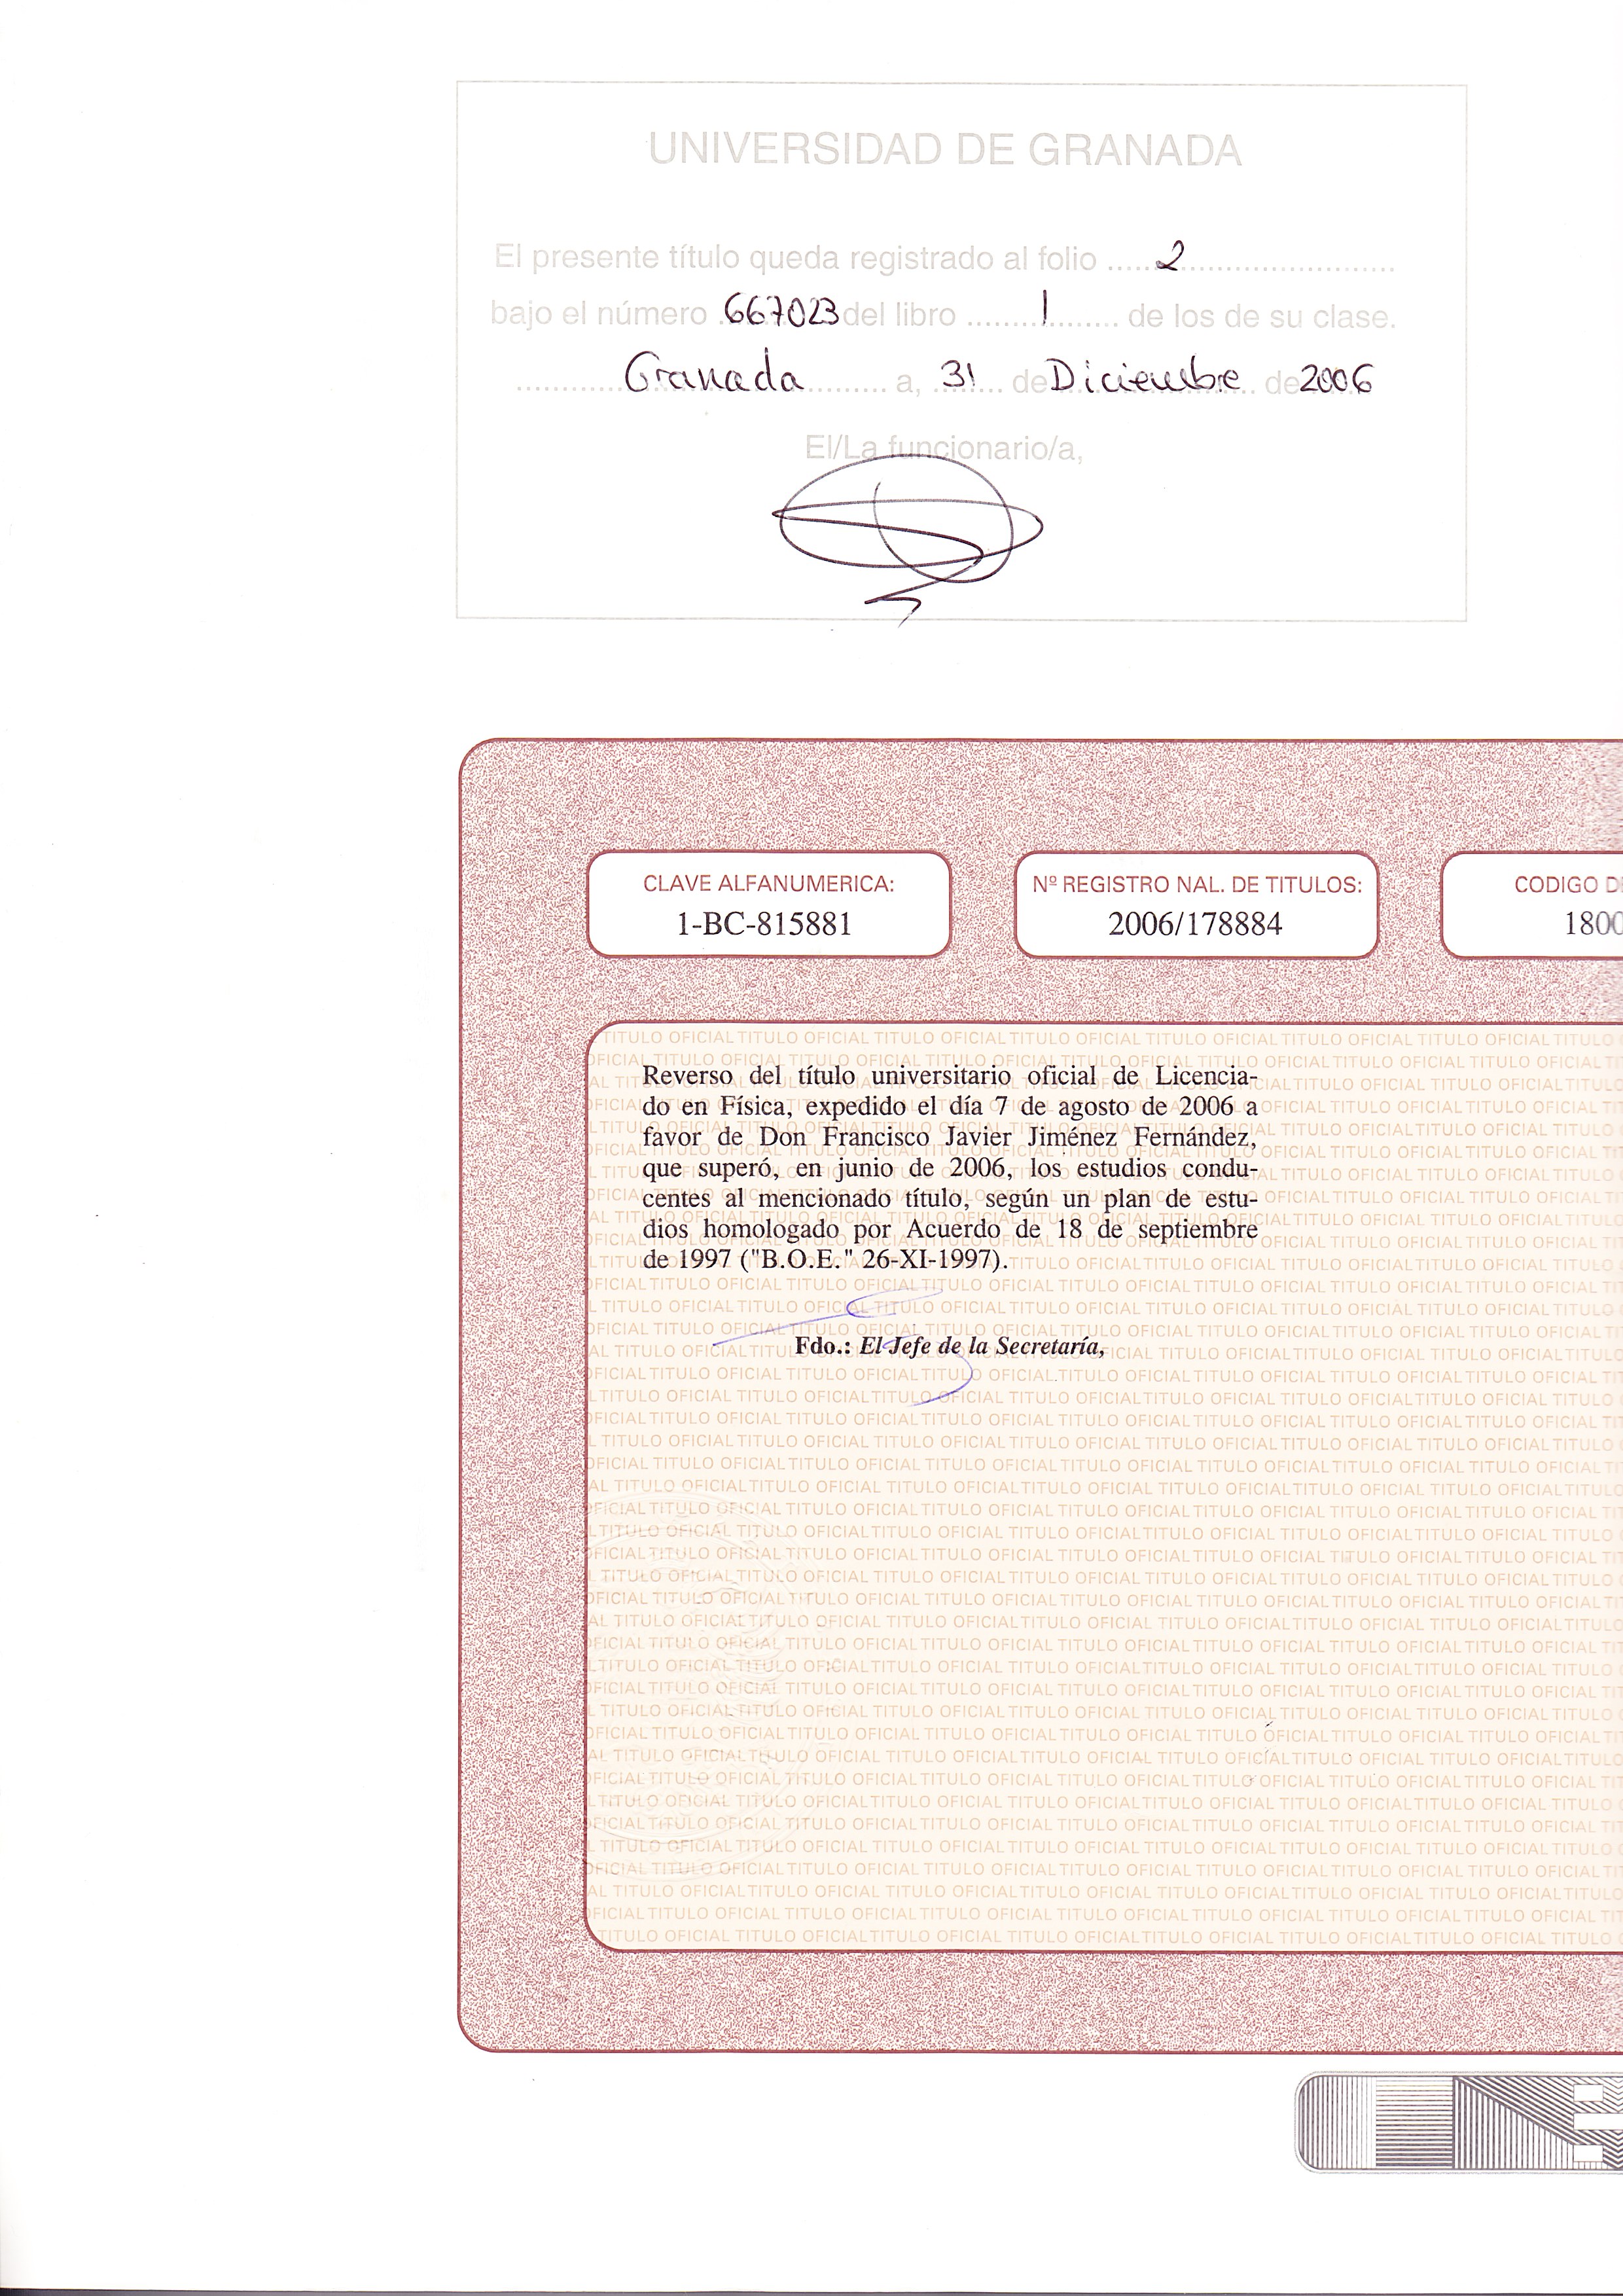 UNIVERSIDAD DE GRANADA
El presente título queda registrado al folio ..... 2 ..............................
bajo el número 667023 del libro ......... 1 ......... de los de su clase.
............. Granada ......... a, 31 de Diciembre de 2006
El/La funcionario/a,
CLAVE ALFANUMERICA:
1-BC-815881
Nº REGISTRO NAL. DE TITULOS:
2006/178884
CODIGO D
1800
Reverso del título universitario oficial de Licencia-
do en Física, expedido el día 7 de agosto de 2006 a
favor de Don Francisco Javier Jiménez Fernández,
que superó, en junio de 2006, los estudios condu-
centes al mencionado título, según un plan de estu-
dios homologado por Acuerdo de 18 de septiembre
de 1997 ("B.O.E." 26-XI-1997).
Fdo.: El Jefe de la Secretaría,